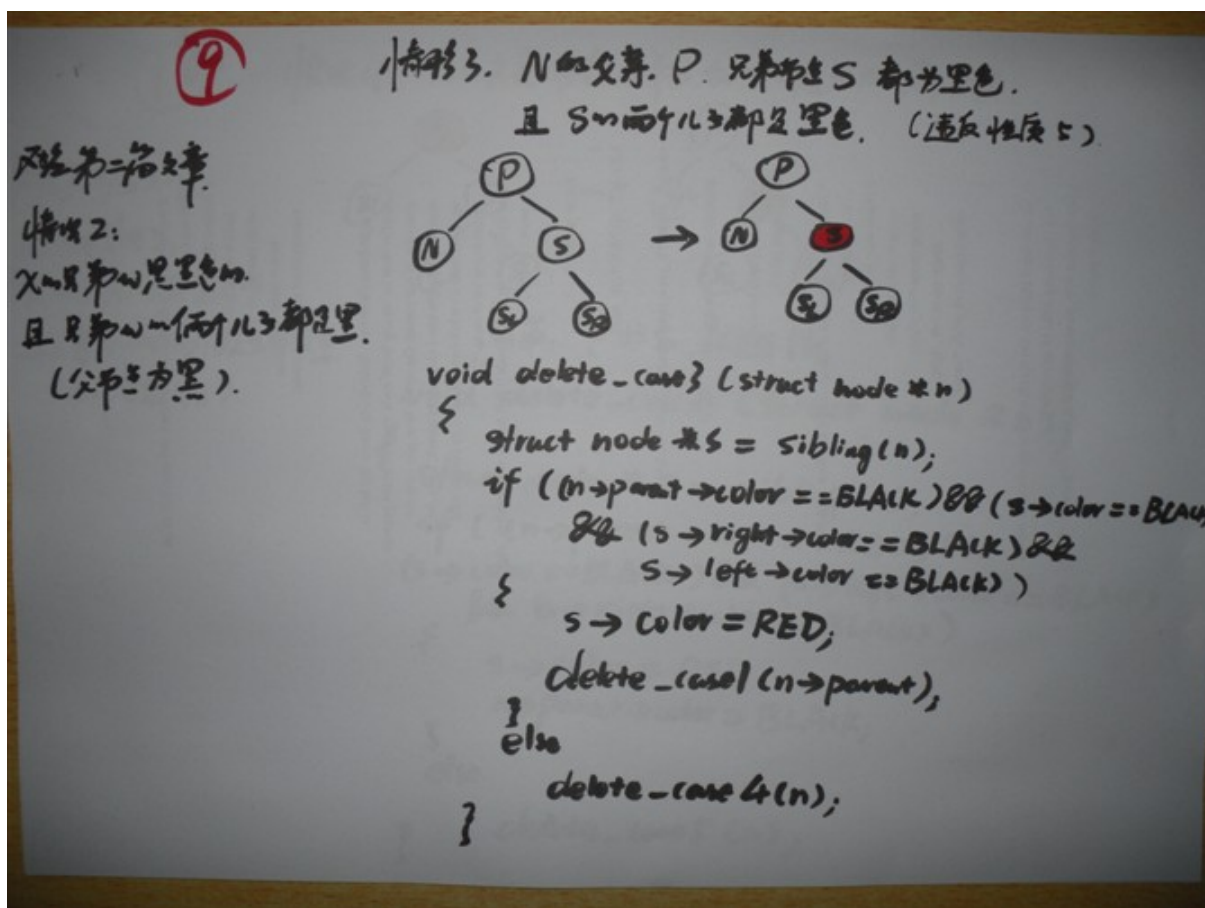 9
情形3. N的父亲. P. 兄弟节点 S 都为黑色.
且 S的两个儿子都是黑色. (违反性质5)
第二篇文章.
情况2:
X的兄弟w是黑色的.
且兄弟w的俩个儿子都是黑.
(父节点为黑).
P
N
S
SL
SR
→
P
N
S
SL
SR
void delete_case3 (struct node *n)
{
struct node *s = sibling(n);
if ((n->parent->color == BLACK) && (s->color == BLACK
&& (s->right->color == BLACK) &&
s->left->color == BLACK))
{
s->color = RED;
delete_case1 (n->parent);
}
else
delete_case4(n);
}